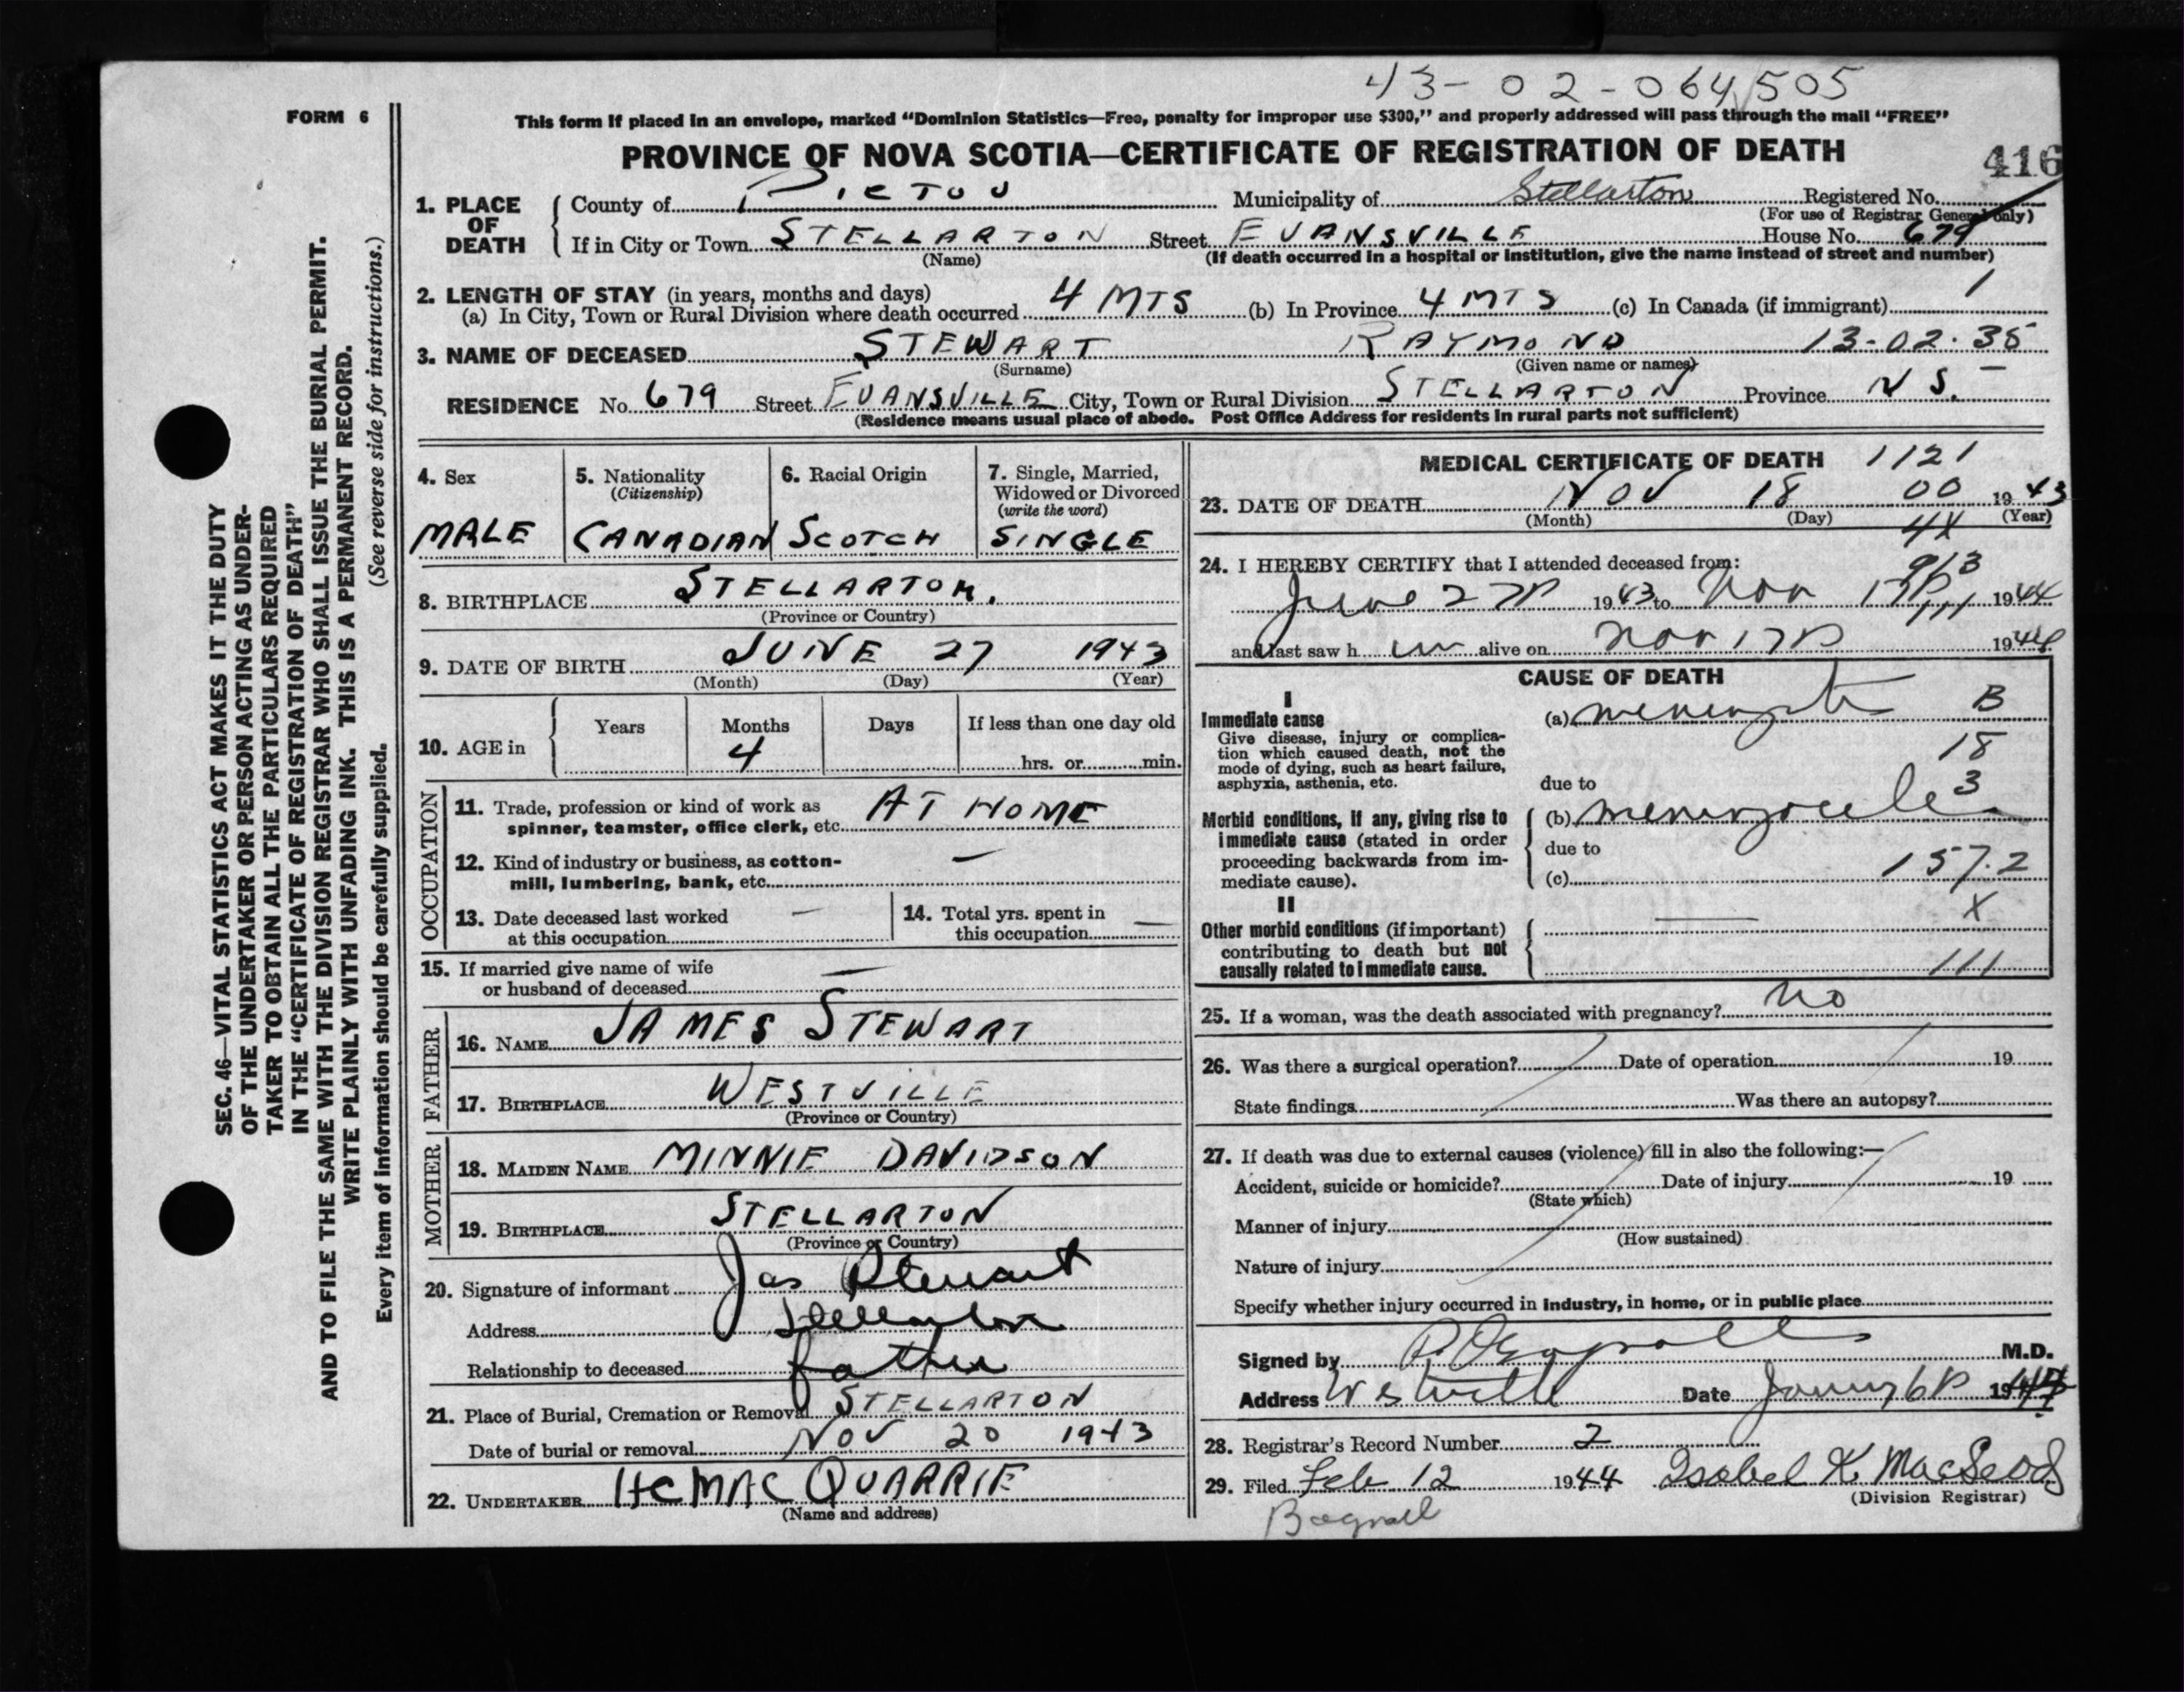 43-02-064505
FORM 6
This form if placed in an envelope, marked "Dominion Statistics—Free, penalty for improper use $300," and properly addressed will pass through the mail "FREE"
PROVINCE OF NOVA SCOTIA—CERTIFICATE OF REGISTRATION OF DEATH
416
1. PLACE OF DEATH
County of PICTOU Municipality of Stellarton Registered No.
(For use of Registrar General only)
If in City or Town STELLARTON Street EVANSVILLE House No. 679
(Name) (If death occurred in a hospital or institution, give the name instead of street and number)
2. LENGTH OF STAY (in years, months and days)
(a) In City, Town or Rural Division where death occurred 4 MTS (b) In Province 4 MTS (c) In Canada (if immigrant) /
3. NAME OF DECEASED STEWART RAYMOND 13-02-35
(Surname) (Given name or names)
RESIDENCE No. 679 Street EVANSVILLE City, Town or Rural Division STELLARTON Province N S.
(Residence means usual place of abode. Post Office Address for residents in rural parts not sufficient)
SEC. 46—VITAL STATISTICS ACT MAKES IT THE DUTY
OF THE UNDERTAKER OR PERSON ACTING AS UNDER-
TAKER TO OBTAIN ALL THE PARTICULARS REQUIRED
IN THE "CERTIFICATE OF REGISTRATION OF DEATH"
AND TO FILE THE SAME WITH THE DIVISION REGISTRAR WHO SHALL ISSUE THE BURIAL PERMIT.
WRITE PLAINLY WITH UNFADING INK. THIS IS A PERMANENT RECORD.
Every item of information should be carefully supplied. (See reverse side for instructions.)
4. Sex
MALE
5. Nationality
(Citizenship)
CANADIAN
6. Racial Origin
SCOTCH
7. Single, Married,
Widowed or Divorced
(write the word)
SINGLE
8. BIRTHPLACE STELLARTON.
(Province or Country)
9. DATE OF BIRTH JUNE 27 1943
(Month) (Day) (Year)
10. AGE in
Years Months Days If less than one day old
4
hrs. or min.
OCCUPATION
11. Trade, profession or kind of work as
spinner, teamster, office clerk, etc. AT HOME
12. Kind of industry or business, as cotton-
mill, lumbering, bank, etc. —
13. Date deceased last worked
at this occupation —
14. Total yrs. spent in
this occupation —
15. If married give name of wife
or husband of deceased —
FATHER
16. NAME JAMES STEWART
17. BIRTHPLACE WESTVILLE
(Province or Country)
MOTHER
18. MAIDEN NAME MINNIE DAVIDSON
19. BIRTHPLACE STELLARTON
(Province or Country)
20. Signature of informant Jas Stewart
Address Stellarton
Relationship to deceased father
21. Place of Burial, Cremation or Removal STELLARTON
Date of burial or removal NOV 20 1943
22. UNDERTAKER HC MAC QUARRIE
(Name and address)
MEDICAL CERTIFICATE OF DEATH 1121
23. DATE OF DEATH NOV 18 00 1943
(Month) (Day) (Year)
24. I HEREBY CERTIFY that I attended deceased from:
June 27 1943 to Nov 17 1944
and last saw h im alive on Nov 17 1944
CAUSE OF DEATH
I
Immediate cause
Give disease, injury or complica-
tion which caused death, not the
mode of dying, such as heart failure,
asphyxia, asthenia, etc.
(a) B
18
due to
3
Morbid conditions, if any, giving rise to
immediate cause (stated in order
proceeding backwards from im-
mediate cause).
(b)
due to
(c) 157.2
X
II
Other morbid conditions (if important)
contributing to death but not
causally related to immediate cause.
—
111
25. If a woman, was the death associated with pregnancy? no
26. Was there a surgical operation? Date of operation 19
State findings Was there an autopsy?
27. If death was due to external causes (violence) fill in also the following:—
Accident, suicide or homicide? Date of injury 19
(State which)
Manner of injury
(How sustained)
Nature of injury
Specify whether injury occurred in industry, in home, or in public place
Signed by M.D.
Address Westville Date 1944
28. Registrar's Record Number 2
29. Filed Feb 12 1944 Isobel K. MacLeod
(Division Registrar)
Bagnall